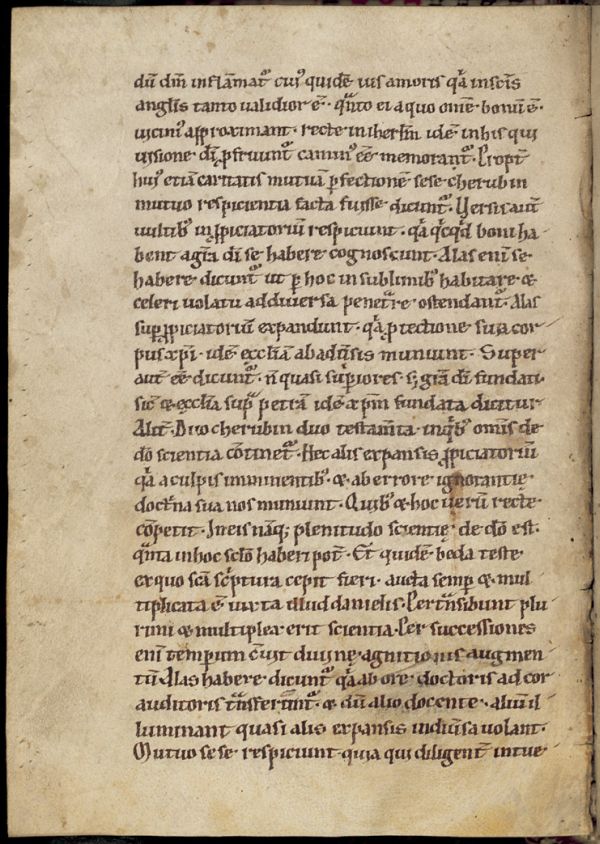 dū dm̄ inflāmat᷑ cui᷒ quidē uis amoris qͣ in sc̄is
anglis tanto ualidior ē · qͣnto ei a quo om̄e bonū ē ·
uicini᷒ approximant · recte in iherłm idē in his qui
uisione dī ꝑfruunt᷑ camin᷒ eē memorant᷑ · Propt̄
hui᷒ etiā caritatis mutuā ꝑfectionē sese cherubin
mutuo respicientia facta fuisse dicunt᷑ · Versis aūt
uultib᷒ in ꝓpiciatoriū respiciunt · qͣ qͥcqͥd boni ha-
bent agr̄a dī se habere cognoscunt · Alas eni se
habere dicunt᷑ ut ꝑ hoc in sublimib᷒ habitare &
celeri uolatu ad diuersa penetͣre ostendant᷑ · Alas
suꝑ ꝓpiciatoriū expandunt · qͣ ꝓtectione sua cor-
pus xp̄i · idē ecclīam ab aduͥsis muniunt · Super
aut eē dicunt᷑ · n̄ quasi suꝑiores · s; gr̄a dī fundati ·
sic̄ & ecclīa supͣ petrā idē xp̄m fundata dicitur
Alit̄ · Duo cherubin duo testam̄ta in qͥb᷒ om̄is de
dō scientia cōtinet᷑ · Hec alis expansis ꝓpiciatoriū
qͣ a culpis imminentib᷒ & ab errore ignorantię
doctͥna sua nos muniunt · Quib᷒ & hoc uerū recte
cōpetit · In eis nāq; plenitudo scientię de dō est ·
qͣnta in hoc sclo haberi pot̄ · Et quidē beda teste
ex quo sc̄a scͥptura cepit fieri · aucta semꝑ & mul-
tiplicata ē iuxta illud danielis · Pertͣnsibunt plu-
rimi & multiplex erit scientia · Per successiones
enī temporum cr̄uit diuinę agnitionis augmen
tū · Alas habere dicunt᷑ qͣ ab ore doctoris ad cor
auditoris tͣnsferunt᷑ · & dū alio docente · aliū il-
luminant quasi alis expansis in diuͥsa uolant ·
Mutuo se se respiciunt · quia qui diligent̄ intue-